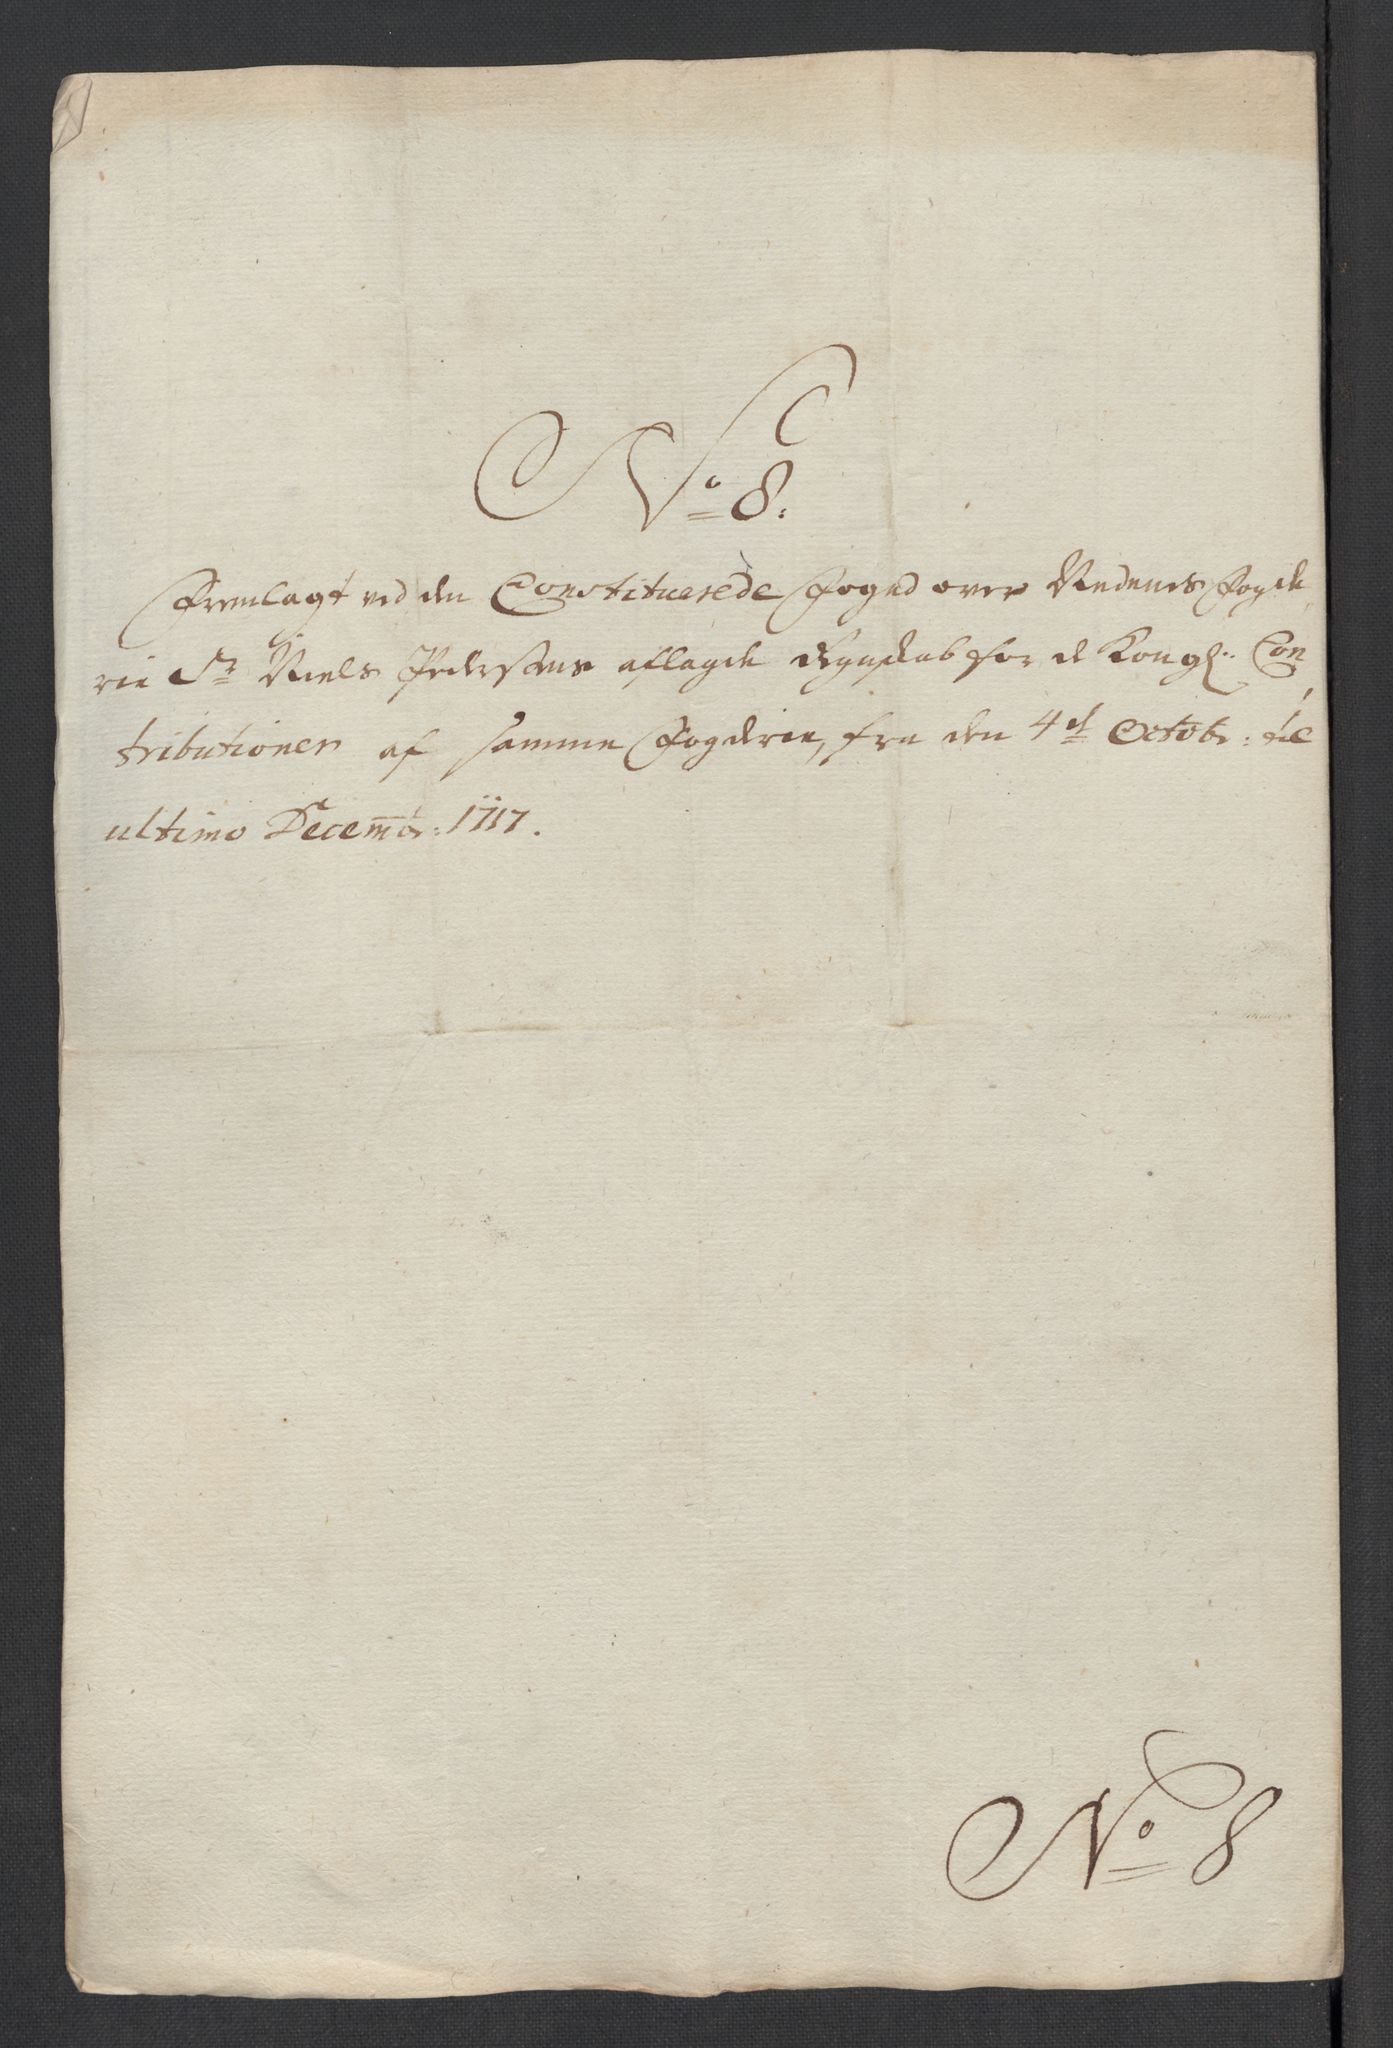 No 8.
Fremlagt ved den Constituerede Foged over Nedenes Fogde
rie Sr Niels Pedersens aflagde Regnskab for de Kongl: Con,
tributioner af samme Fogderie, fra den 4de Octobr: til
ultimo Decembr: 1717.
No 8